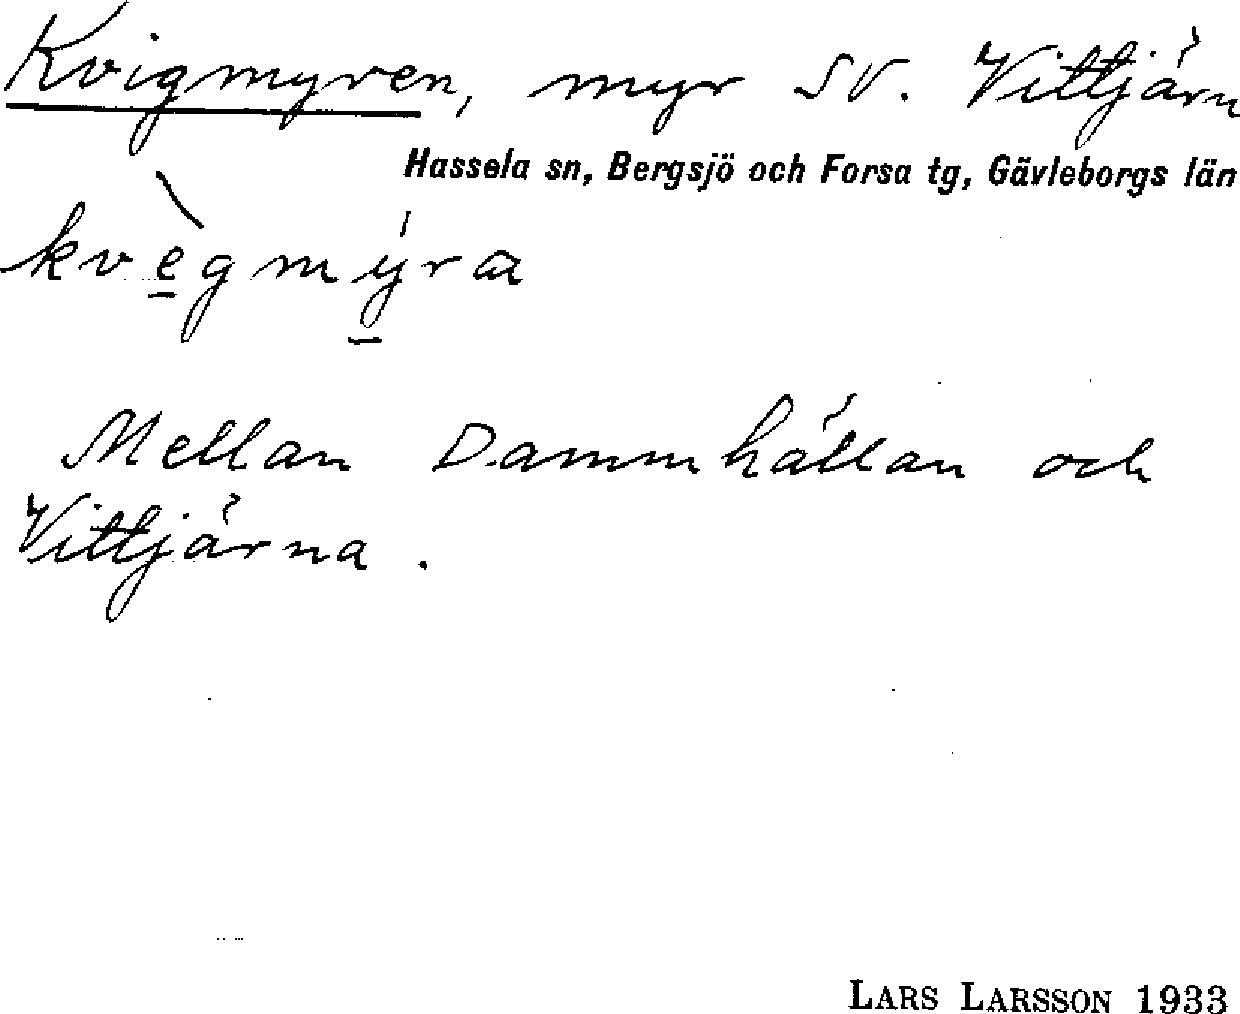 Kvigmyren, myr SV. Vittjärn
Hassela sn, Bergsjö och Forsa tg, Gävleborgs län
kvègmýra
Mellan Dammhällan och
Vittjärna.
LARS LARSSON 1933